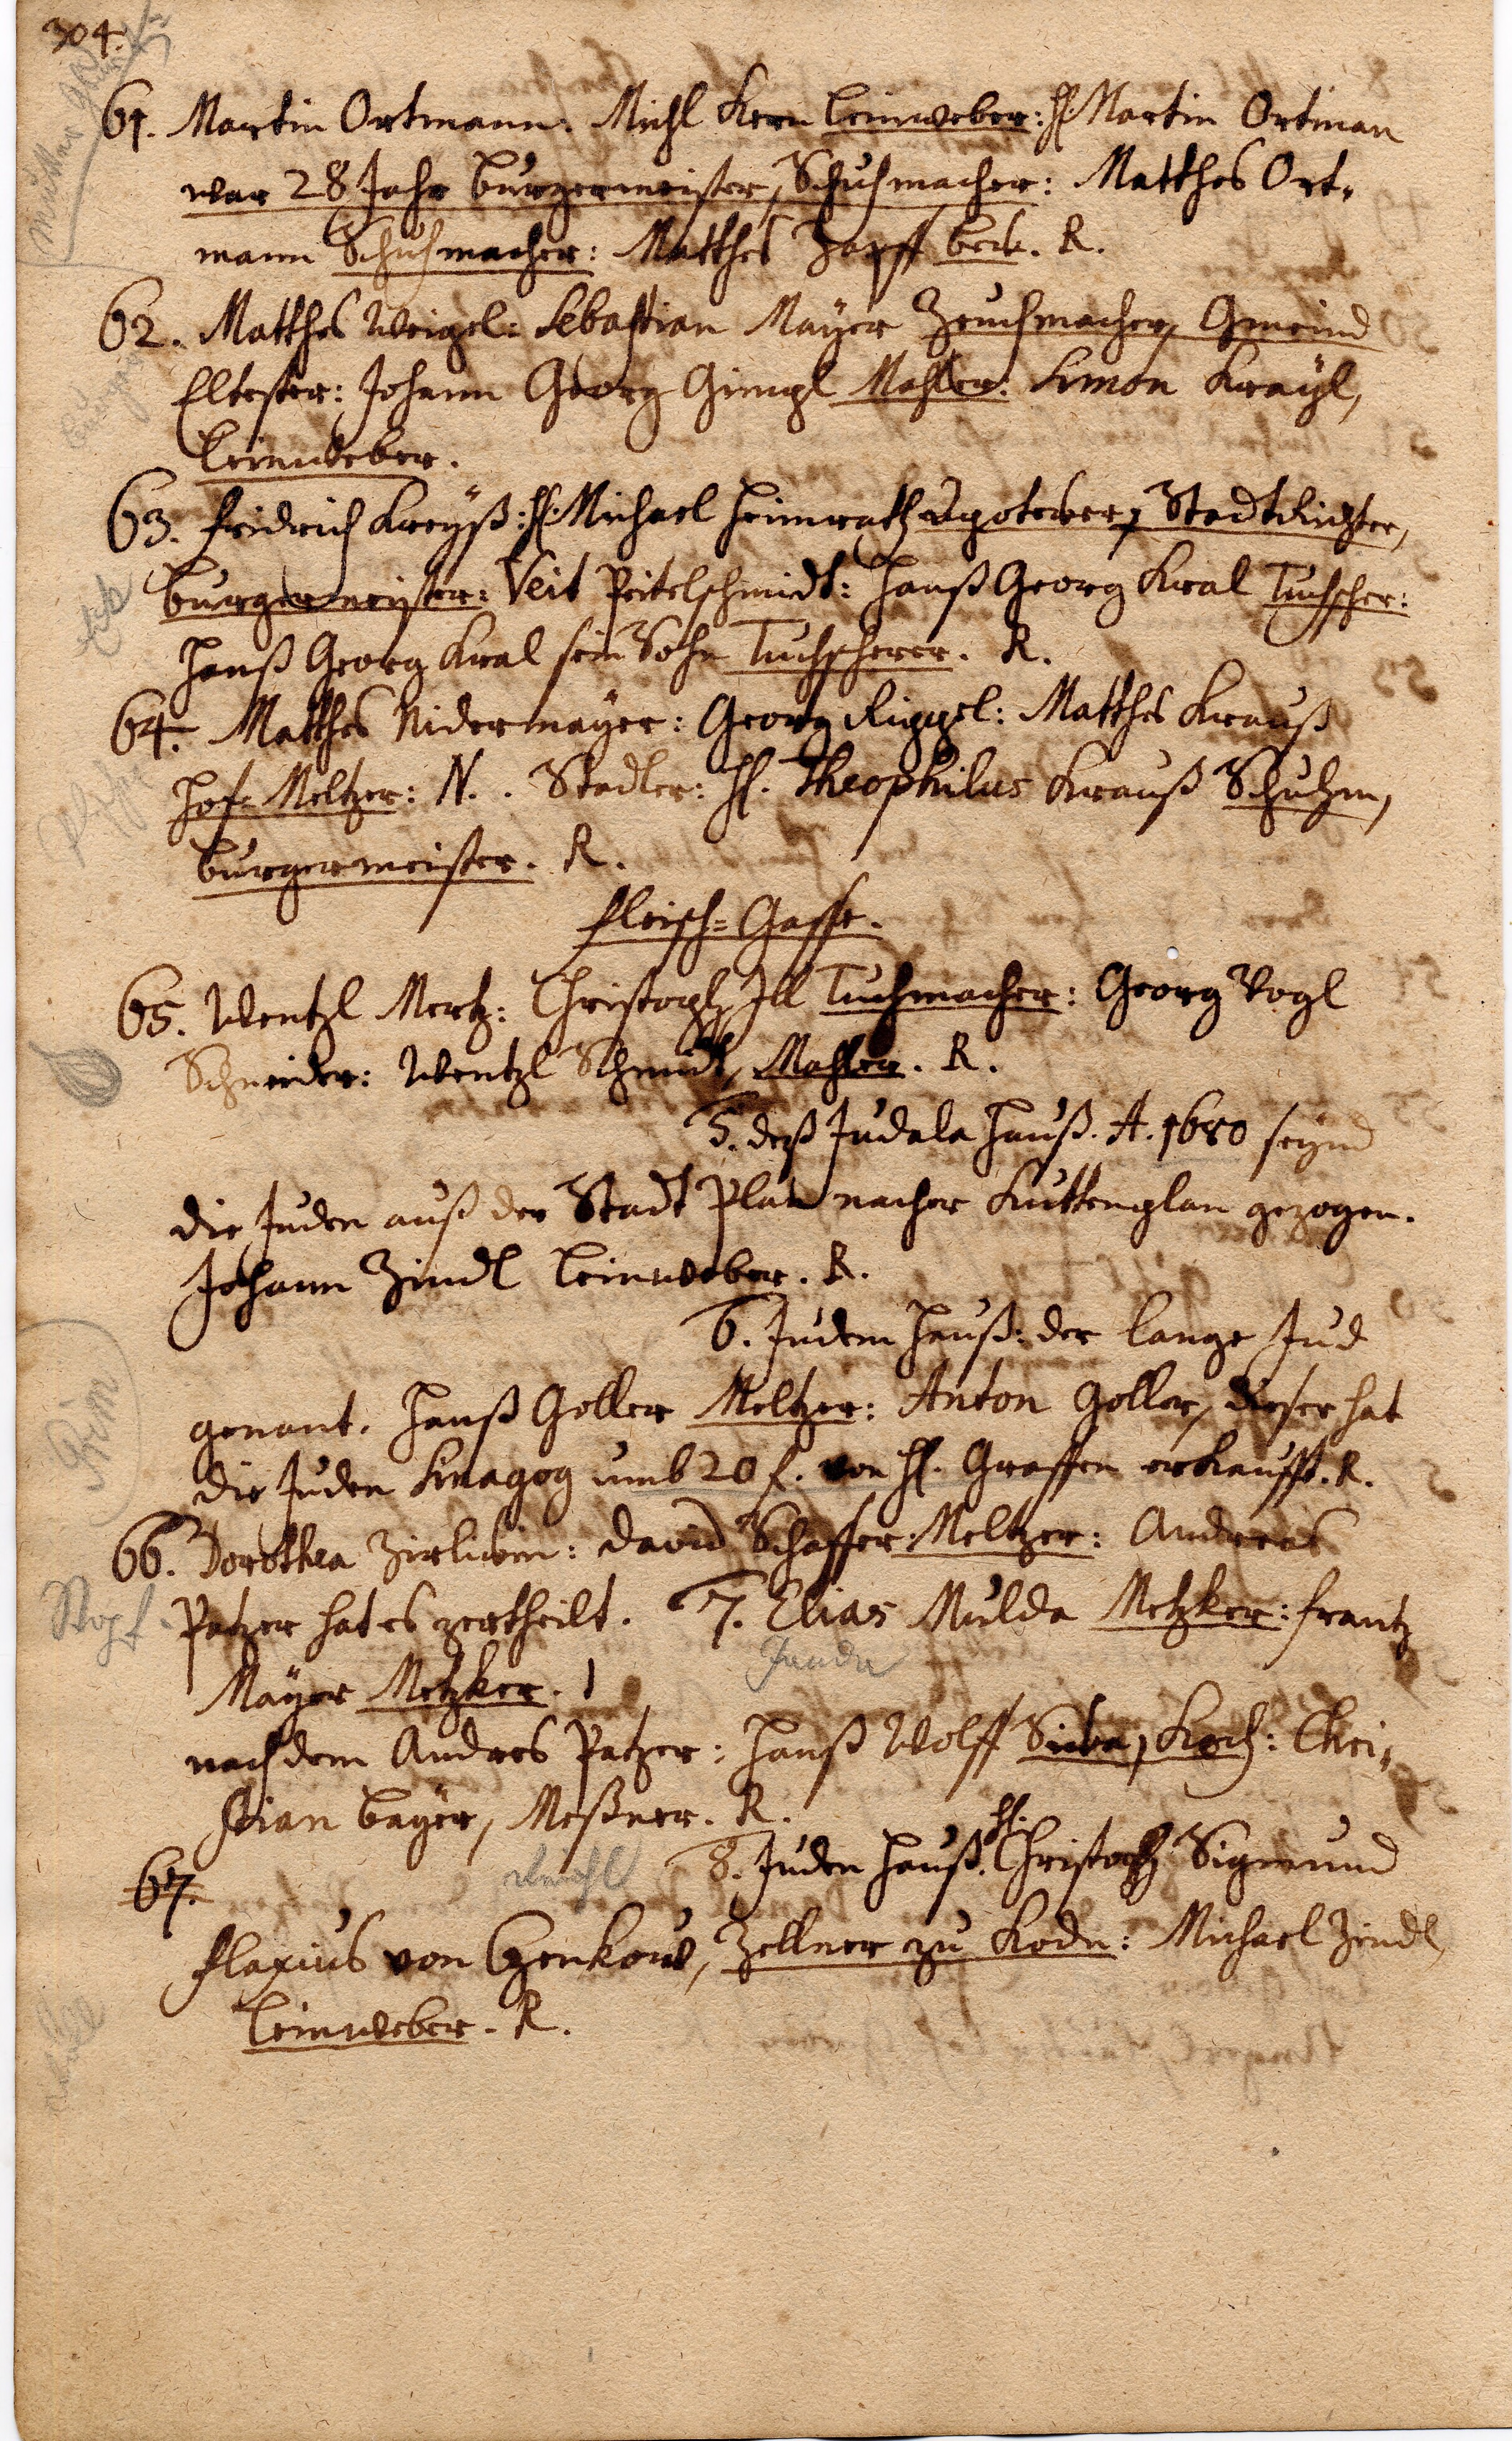 304.
61. Martin Ortmann: Michl Kern Leinweber: H Martin Ortman
war 28 Jahr burgermeister, Schuhmacher: Matthes Ort-
mann Schuhmacher: Matthes Zapff beck. R.
62. Matthes Weigel: Sebastian Mayer Zeuchmacher, Gmeind
Eltester: Johann Georg Gimpl Mahler: Simon Krayl,
Leinweber.
63. fridrich Kreyß: H. Michael Heimrath Apotecker, StadtRichter,
burgermeister: Veit Peitelschmidt: Hanß Georg Kral Tuchscher:
Hanß Georg Kral sein Sohn Tuchscherer. R.
64. Matthes Nidermayer: Georg Rippel: Matthes Krauß
Hof-Meltzer: N.. Stadler: H. Theophilus Krauß Schuhm,
burgermeister. R.
fleisch=Gasse.
65. Wentzl Mertz: Christoph Ill Tuchmacher: Georg Vogl
Schneider: Wentzl Schmidt, Mahler. R.
5. deß Judala Hauß. A. 1680 seynd
die Juden auß der Stadt Plan nacher Kuttenplan gezogen.
Johann Zindl Leinweber. R.
6. Juden Hauß: der lange Jud
genant. Hanß Goller Meltzer: Anton Goller, dieser hat
die Juden Sinagog umb 20 f. von H. Graffen erkaufft. R.
66. Dorothea Zirlikin: David Schaffer Meltzer: Andreas
Patzer hat es zertheilt. 7. Elias Mulda Metzker: frantz
Janda
Mayer Metzker.
nach dem Andres Patzer: Hanß Wolff Sicka, Koch: Chri-
stian Bayer, Meßner. R.
67. 8. Juden Hauß. H. Christoph Sigmund
flaxius von Czenkow, Zellner zu Kodn: Michael Zindl,
Leinweber. R.